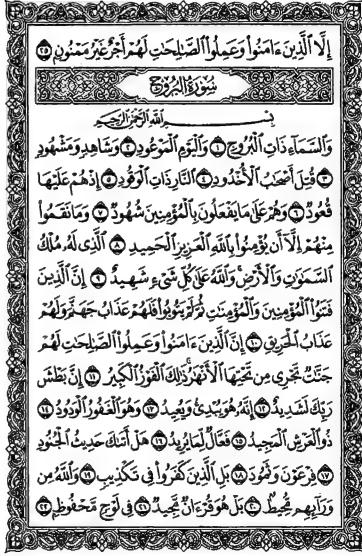 إِلَّا ٱلَّذِينَ ءَامَنُوا۟ وَعَمِلُوا۟ ٱلصَّٰلِحَٰتِ لَهُمْ أَجْرٌ غَيْرُ مَمْنُونٍۭ ٢٥
سُورَةُ البُرُوجِ
بِسْمِ ٱللَّهِ ٱلرَّحْمَٰنِ ٱلرَّحِيمِ
وَٱلسَّمَآءِ ذَاتِ ٱلْبُرُوجِ ١ وَٱلْيَوْمِ ٱلْمَوْعُودِ ٢ وَشَاهِدٍ وَمَشْهُودٍ
٣ قُتِلَ أَصْحَٰبُ ٱلْأُخْدُودِ ٤ ٱلنَّارِ ذَاتِ ٱلْوَقُودِ ٥ إِذْ هُمْ عَلَيْهَا
قُعُودٌ ٦ وَهُمْ عَلَىٰ مَا يَفْعَلُونَ بِٱلْمُؤْمِنِينَ شُهُودٌ ٧ وَمَا نَقَمُوا۟
مِنْهُمْ إِلَّآ أَن يُؤْمِنُوا۟ بِٱللَّهِ ٱلْعَزِيزِ ٱلْحَمِيدِ ٨ ٱلَّذِى لَهُۥ مُلْكُ
ٱلسَّمَٰوَٰتِ وَٱلْأَرْضِ وَٱللَّهُ عَلَىٰ كُلِّ شَىْءٍ شَهِيدٌ ٩ إِنَّ ٱلَّذِينَ
فَتَنُوا۟ ٱلْمُؤْمِنِينَ وَٱلْمُؤْمِنَٰتِ ثُمَّ لَمْ يَتُوبُوا۟ فَلَهُمْ عَذَابُ جَهَنَّمَ وَلَهُمْ
عَذَابُ ٱلْحَرِيقِ ١٠ إِنَّ ٱلَّذِينَ ءَامَنُوا۟ وَعَمِلُوا۟ ٱلصَّٰلِحَٰتِ لَهُمْ
جَنَّٰتٌ تَجْرِى مِن تَحْتِهَا ٱلْأَنْهَٰرُ ذَٰلِكَ ٱلْفَوْزُ ٱلْكَبِيرُ ١١ إِنَّ بَطْشَ
رَبِّكَ لَشَدِيدٌ ١٢ إِنَّهُۥ هُوَ يُبْدِئُ وَيُعِيدُ ١٣ وَهُوَ ٱلْغَفُورُ ٱلْوَدُودُ ١٤
ذُو ٱلْعَرْشِ ٱلْمَجِيدُ ١٥ فَعَّالٌ لِّمَا يُرِيدُ ١٦ هَلْ أَتَىٰكَ حَدِيثُ ٱلْجُنُودِ
١٧ فِرْعَوْنَ وَثَمُودَ ١٨ بَلِ ٱلَّذِينَ كَفَرُوا۟ فِى تَكْذِيبٍ ١٩ وَٱللَّهُ مِن
وَرَآئِهِم مُّحِيطٌۢ ٢٠ بَلْ هُوَ قُرْءَانٌ مَّجِيدٌ ٢١ فِى لَوْحٍ مَّحْفُوظٍۭ ٢٢